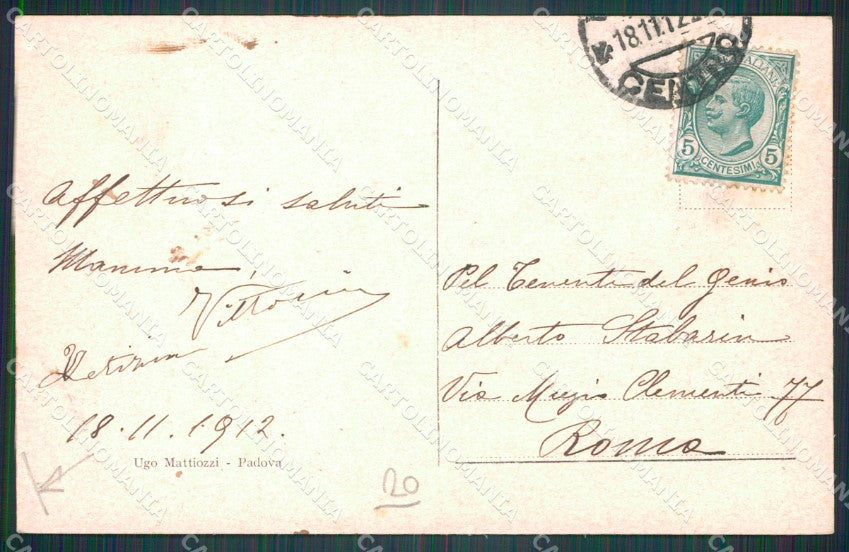 18.11.12
CENTRO
ITALIANE
5 CENTESIMI 5
Affettuosi saluti
Mamma,
Vittoria
18.11.1912.
Ugo Mattiozzi - Padova
20
Pel Tenente del Genio
Alberto Stabarin
Via Muzio Clementi 77
Roma
CARTOLINOMANIA